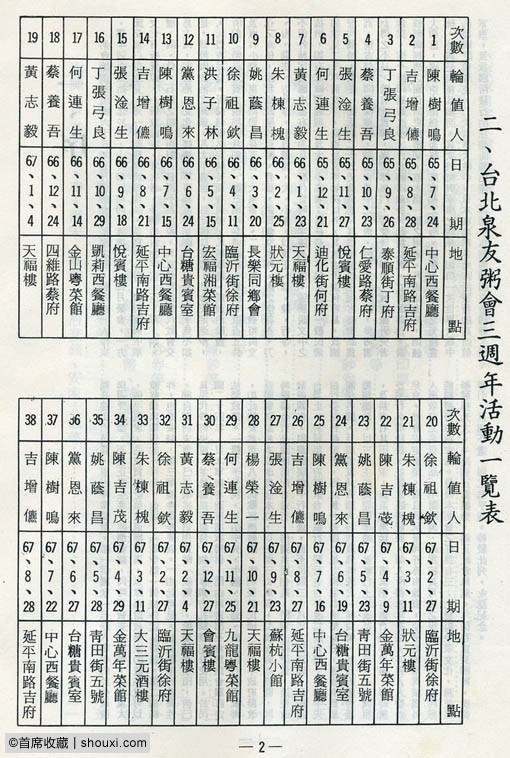 二、台北泉友粥會三週年活動一覽表
次數 輪值人 日期 地點
1 陳樹鳴 65、7、24 中心西餐廳
2 吉增儦 65、8、28 延平南路吉府
3 丁張弓良 65、9、26 泰順街丁府
4 蔡養吾 65、10、23 仁愛路蔡府
5 張淦生 65、11、27 悅賓樓
6 何連生 65、12、21 迪化街何府
7 黃志毅 66、1、23 天福樓
8 朱棟槐 66、2、25 狀元樓
9 姚蔭昌 66、3、20 長樂同鄉會
10 徐祖欽 66、4、11 臨沂街徐府
11 洪子林 66、5、15 宏福湘菜館
12 黨恩來 66、6、24 台糖貴賓室
13 陳樹鳴 66、7、15 中心西餐廳
14 吉增儦 66、8、21 延平南路吉府
15 張淦生 66、9、18 悅賓樓
16 丁張弓良 66、10、29 凱莉西餐廳
17 何連生 66、11、14 金山粵菜館
18 蔡養吾 66、12、24 四維路蔡府
19 黃志毅 67、1、4 天福樓
次數 輪值人 日期 地點
20 徐祖欽 67、2、27 臨沂街徐府
21 朱棟槐 67、3、11 狀元樓
22 陳吉茂 67、4、9 金萬年菜館
23 姚蔭昌 67、5、23 青田街五號
24 黨恩來 67、6、19 台糖貴賓室
25 陳樹鳴 67、7、16 中心西餐廳
26 吉增儦 67、8、27 延平南路吉府
27 張淦生 67、9、23 蘇杭小館
28 楊榮一 67、10、21 天福樓
29 何連生 67、11、25 九龍粵菜館
30 蔡養吾 67、12、27 會賓樓
31 黃志毅 67、2、4 天福樓
32 徐祖欽 67、2、27 臨沂街徐府
33 朱棟槐 67、3、11 大三元酒樓
34 陳吉茂 67、4、29 金萬年菜館
35 姚蔭昌 67、5、28 青田街五號
36 黨恩來 67、6、27 台糖貴賓室
37 陳樹鳴 67、7、22 中心西餐廳
38 吉增儦 67、8、28 延平南路吉府
— 2 —
©首席收藏 | shouxi.com